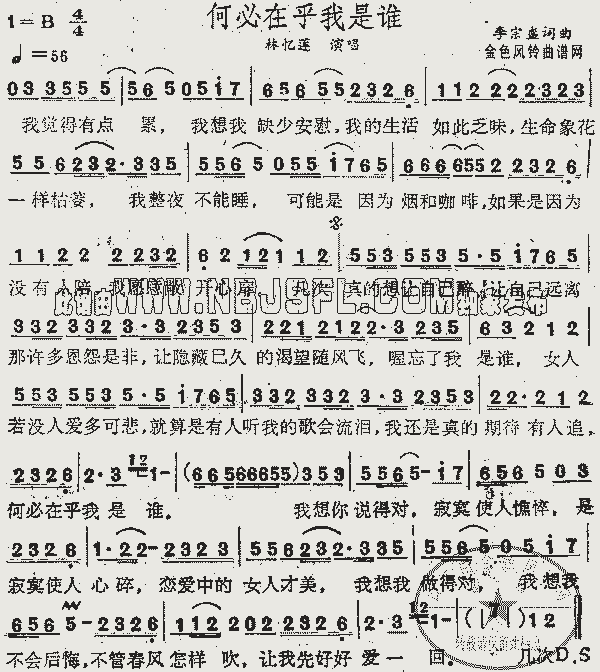 何必在乎我是谁
1=B 4/4
♩=56
林忆莲 演唱
李宗盛词曲
金色风铃曲谱网
03 3555 5 | 56 5 051̇7 | 656 55 2326 | 112 22 22323
我觉得有点 累，我想我 缺少安慰，我的生活 如此乏味，生命象花
556232·335 | 556 5 055 1̇765 | 666655 2 2326
一样枯萎， 我整夜 不能睡， 可能是 因为 烟和咖 啡，如果是因为
1 1 22 2 2232 | 62 121 1 | 553 553 5·5 1̇765
没有人陪，我愿意敞 开心扉 几次 真的想让自己醉，让自己远离
332 332 3·3 2353 | 221 2122·3 235 | 63 2 1 2
那许多恩怨是非，让隐藏已久 的渴望随风飞，喔忘了我 是谁， 女人
553 553 5·5 1̇765 | 332 332 3·3 2353 | 22·2 2 1 2
若没人爱多可悲，就算是有人听我的歌会流泪，我还是真的 期待 有人追，
2326 | 2·3 12 1- | (665666655)353 | 5565-1̇7 | 656 5 03
何必在乎我 是 谁。 我想你 说得对， 寂寞 使人憔悴， 是
2326 | 1·22-2323 | 51212335 | 556 5 05 1̇7
寂寞使人 心 碎， 恋爱中的 女人才美， 我想我 做得对， 我想我
656 5-2326 | 1212 02 2326 | 2·3 12 1-
不会后悔，不管春风怎样 吹，让我先好好 爱 一 回。 几次D.S